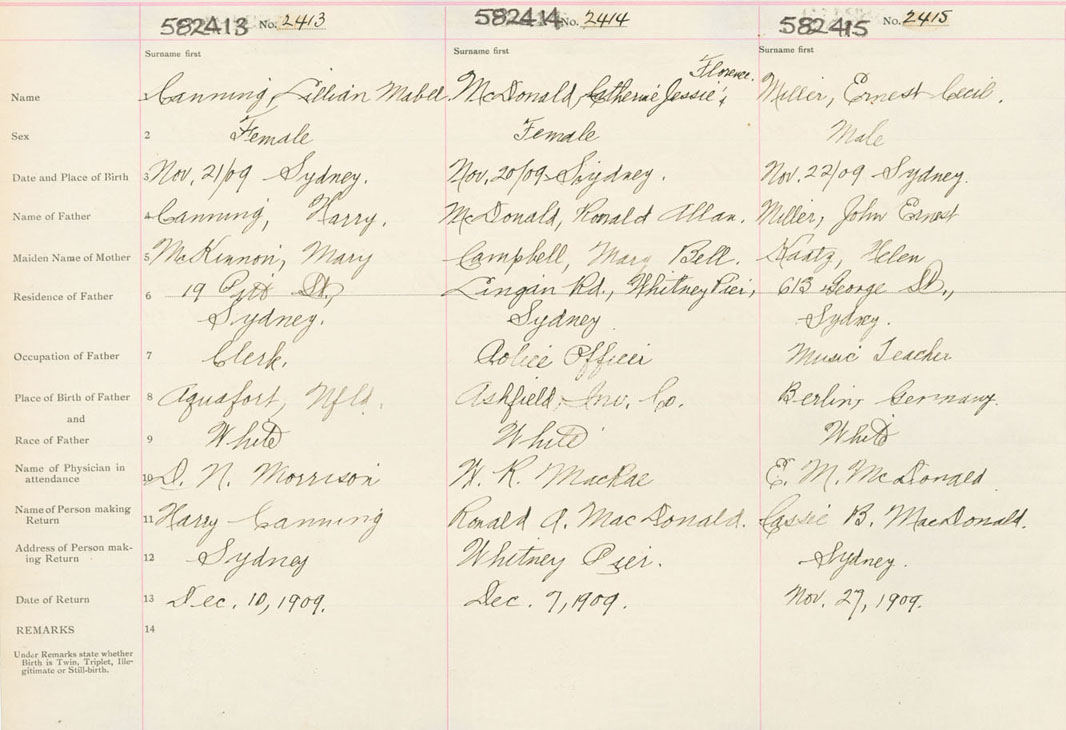 582413 No. 2413 582414 No. 2414 582415 No. 2415
Surname first Surname first Surname first
Florence.
Name 1 Canning, Lillian Mabel McDonald, Catherine Jessie Miller, Ernest Cecil.
Sex 2 Female Female Male
Date and Place of Birth 3 Nov. 21/09 Sydney. Nov. 20/09 Sydney. Nov. 22/09 Sydney.
Name of Father 4 Canning, Harry. McDonald, Ronald Allan. Miller, John Ernest
Maiden Name of Mother 5 McKinnon, Mary Campbell, Mary Bell. Kaatz, Helen
Residence of Father 6 19 Pitt St., Lingan Rd., Whitney Pier, 613 George St.,
Sydney. Sydney Sydney.
Occupation of Father 7 Clerk. Police Officer Music Teacher
Place of Birth of Father 8 Aquafort, Nfld. Ashfield, Inv. Co. Berlin, Germany.
and
Race of Father 9 White White White
Name of Physician in attendance 10 D. N. Morrison W. R. MacRae E. M. McDonald
Name of Person making Return 11 Harry Canning Ronald A. MacDonald. Cassie B. MacDonald.
Address of Person mak-
ing Return 12 Sydney Whitney Pier. Sydney.
Date of Return 13 Dec. 10, 1909. Dec. 7, 1909. Nov. 27, 1909.
REMARKS 14
Under Remarks state whether
Birth is Twin, Triplet, Ille-
gitimate or Still-birth.